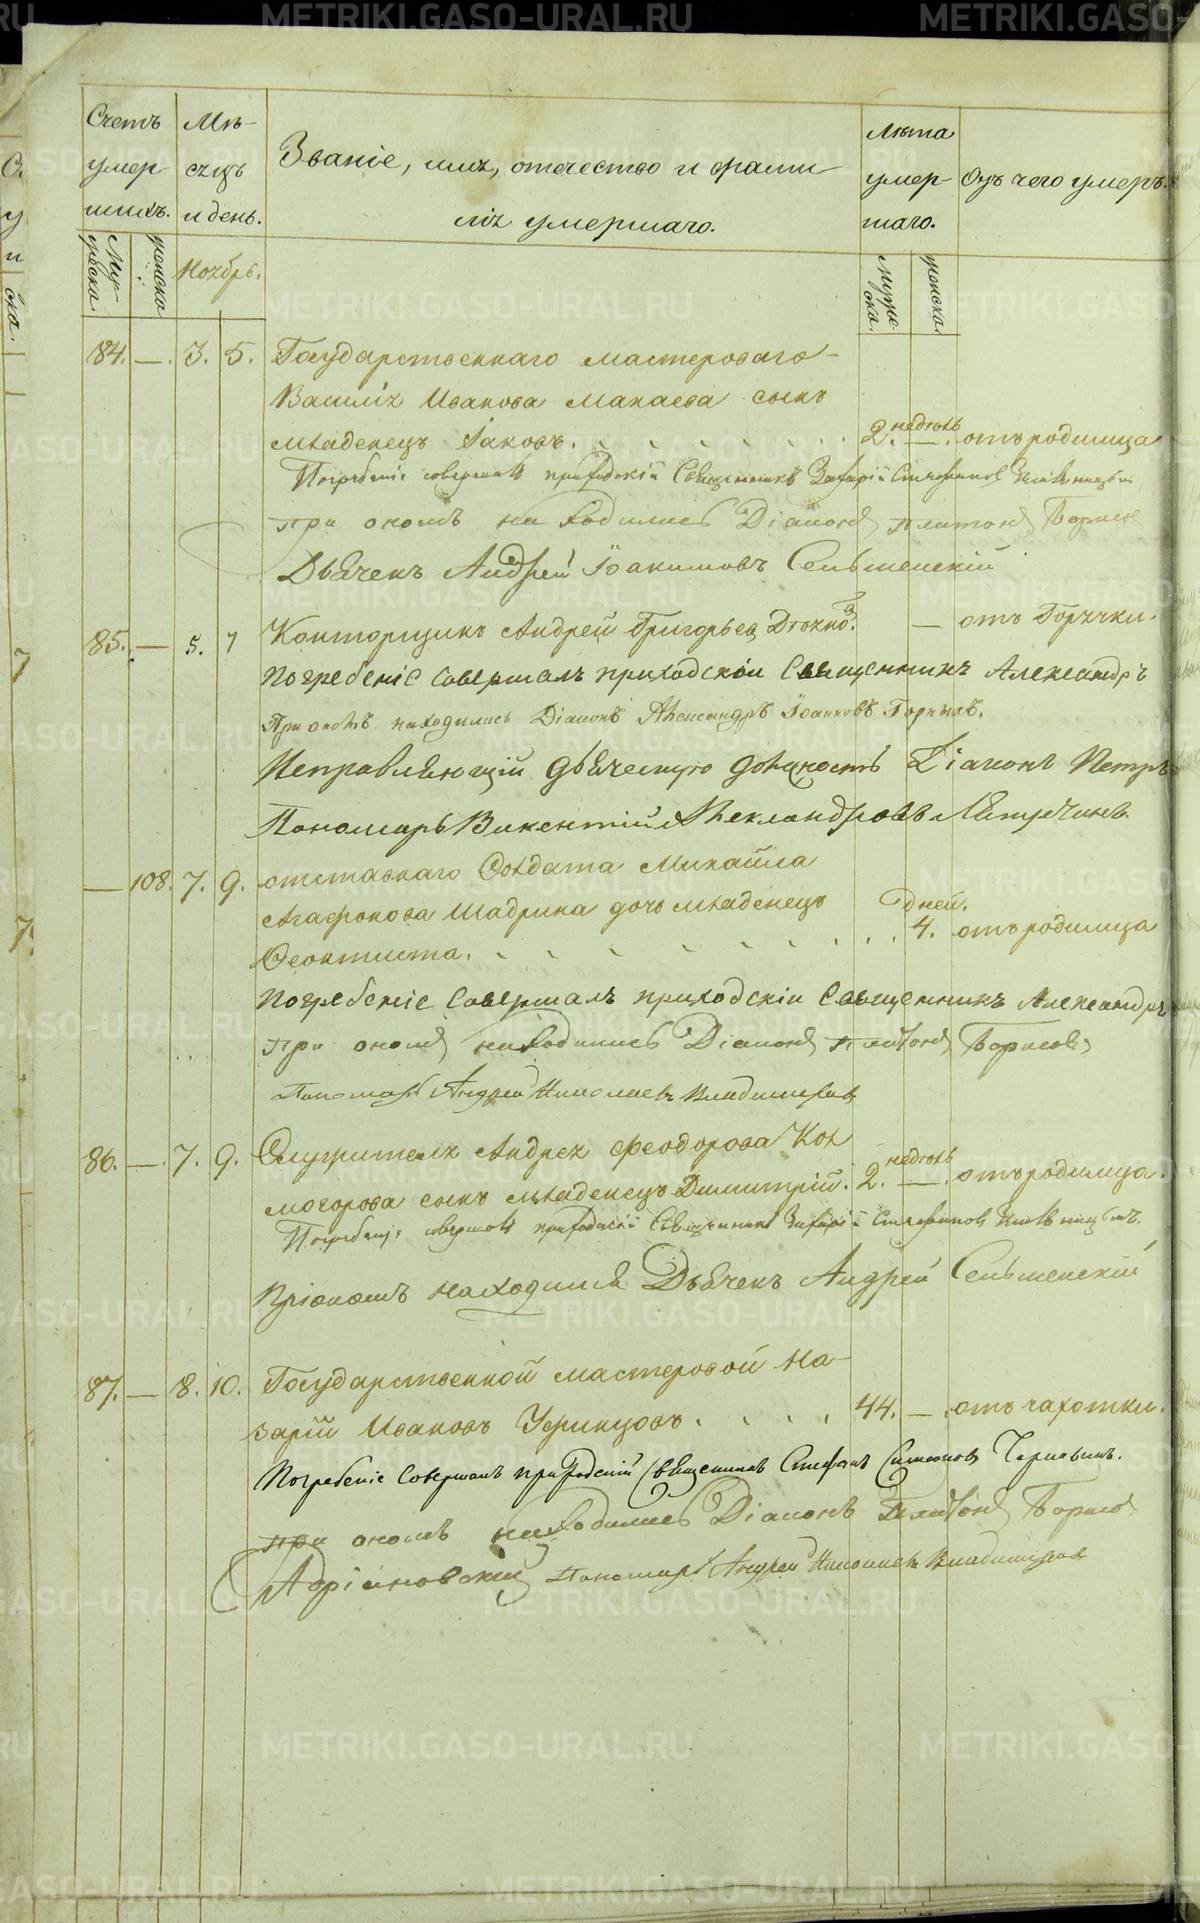 Счетъ умер-шихъ.
Мѣ-сяцъ и день.
Званіе, имя, отечество и фами-
лія умершаго.
Лѣта умер-шаго.
Отъ чего умеръ.
Мужеска.
женска.
Ноябрь.
Мужеска.
женска.
84. — . 3. 5. Государственнаго мастероваго
Василія Иванова Макаева сынъ
младенецъ Іаковъ. 2. недѣль — . отъ родимца
Погребеніе совершалъ приходскій Священникъ Захарій Стефановъ
при ономъ находились Діаконъ Платонъ Борисовъ
Дьячекъ Андрей Іоакимовъ Сельменскій
85. — 5. 7 Конторщикъ Андрей Григорьевъ — отъ Горячки.
Погребеніе совершалъ приходскій Священникъ Александръ
При ономъ находились Діаконъ Александръ Іоанновъ Горныхъ.
Исправляющій дьяческую должность Діаконъ Петръ
Пономарь Викентій Александровъ
— 108. 7. 9. отставнаго Солдата Михайла
Агафонова Шадрина дочь младенецъ дней.
Феоктиста. 4. отъ родимца
Погребеніе совершалъ приходскій Священникъ Александръ
при ономъ находились Діаконъ Платонъ Борисовъ
Пономарь Андрей Николаевъ Владиміровъ
86. — . 7. 9. Служителя Андрея Феодорова Кол
могорова сынъ младенецъ Димитрій. 2. недѣль — . отъ родимца.
Погребеніе совершалъ приходскій Священникъ Захарій Стефановъ
При ономъ находился Дьячекъ Андрей Сельменскій
87. — 8. 10. Государственной мастеровой На-
зарій Ивановъ Уфинцовъ. 44. — . отъ чахотки.
Погребеніе совершалъ приходскій Священникъ Стефанъ Симеоновъ
при ономъ находились Діаконъ Платонъ Борисовъ
Адріановскій Пономарь Андрей Николаевъ Владиміровъ
METRIKI.GASO-URAL.RU